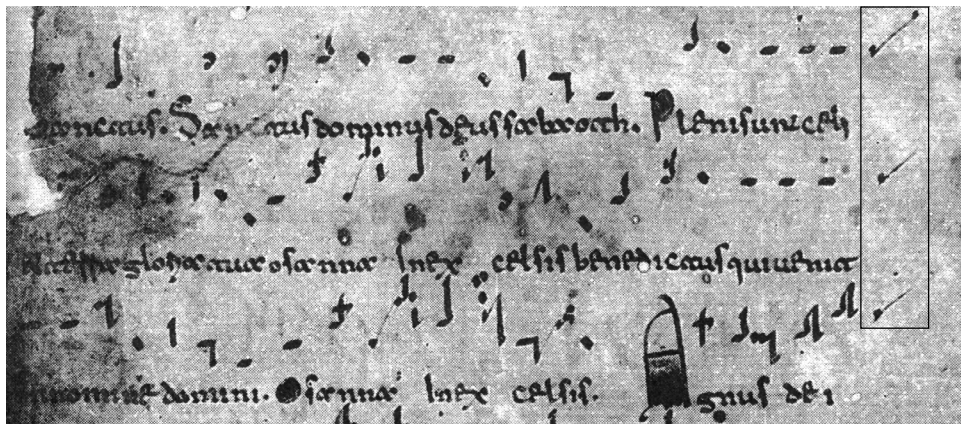 anctus. Sanctus dominus deus sabaoth. Pleni sunt celi
et terra gloria tua osanna in excelsis benedictus qui uenit
in nomine domini. Osanna in excelsis. Agnus dei